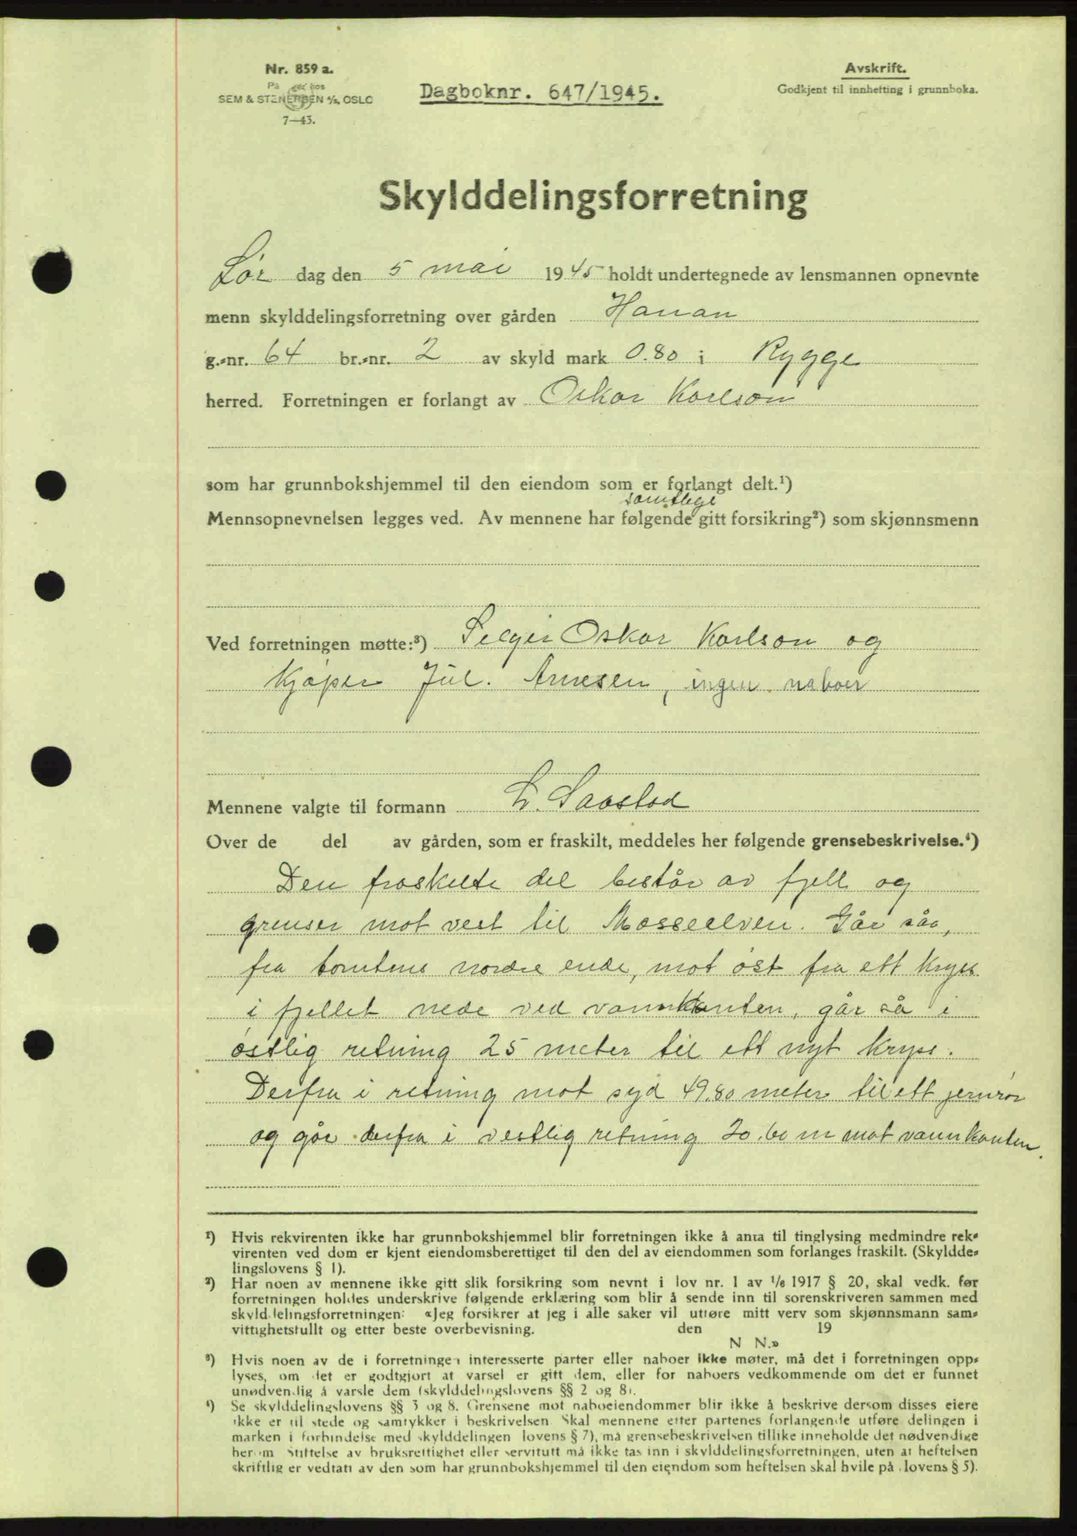 Nr. 859 a.
På lager hos
SEM & STENERSEN A/S, OSLO
7—43.
Dagboknr. 647/1945.
Avskrift.
Godkjent til innhefting i grunnboka.
Skylddelingsforretning
Lør dag den 5 mai 1945 holdt undertegnede av lensmannen opnevnte
menn skylddelingsforretning over gården Hanan
g.-nr. 64 br.-nr. 2 av skyld mark 0.80 i Rygge
herred. Forretningen er forlangt av Oskar Karlson
som har grunnbokshjemmel til den eiendom som er forlangt delt.¹)
samtlige
Mennsopnevnelsen legges ved. Av mennene har følgende gitt forsikring²) som skjønnsmenn
Ved forretningen møtte:³) Selger Oskar Karlson og
Kjøper Jul. Arnesen, ingen naboer
Mennene valgte til formann L. Saastad
Over de del av gården, som er fraskilt, meddeles her følgende grensebeskrivelse.⁴)
Den fraskilte del består av fjell og
grenser mot vest til Mosseelven. Går så,
fra tomtens nordre ende, mot øst fra ett kryss
i fjellet nede ved vannkanten, går så i
østlig retning 25 meter til ett nytt kryss.
Derfra i retning mot syd 49.80 meter til ett jernrør
og går derfra i vestlig retning 20.60 m mot vannkanten.
¹) Hvis rekvirenten ikke har grunnbokshjemmel blir forretningen ikke å anta til tinglysing medmindre rek-
virenten ved dom er kjent eiendomsberettiget til den del av eiendommen som forlanges fraskilt. (Skyldde-
lingslovens § 1).
²) Har noen av mennene ikke gitt slik forsikring som nevnt i lov nr. 1 av 1/6 1917 § 20, skal vedk. før
forretningen holdes underskrive følgende erklæring som blir å sende inn til sorenskriveren sammen med
skylddelingsforretningen: «Jeg forsikrer at jeg i alle saker vil utføre mitt verv som skjønnsmann sam-
vittighetsfullt og etter beste overbevisning. den 19
N N.»
³) Hvis noen av de i forretningen interesserte parter eller naboer ikke møter, må det i forretningen opp-
lyses, om det er godtgjort at varsel er gitt dem, eller for naboers vedkommende om det er funnet
unødvendig å varsle dem (skylddelingslovens §§ 2 og 8).
⁴) Se skylddelingslovens §§ 3 og 8. Grensene mot naboeiendommer blir ikke å beskrive dersom disses eiere
ikke er til stede og samtykker i beskrivelsen Skal mennene etter partenes forlangende utføre delingen i
marken i forbindelse med skylddelingen lovens § 7), må grensebeskrivelsen tillike inneholde det nødvendige
herom Stiftelse av bruksrettighet eller servitutt må ikke tas inn i skylddelingsforretningen, uten at heftelsen
skriftlig er vedtatt av den som har grunnbokshjemmel til den eiendom som heftelsen skal hvile på lovens § 5).